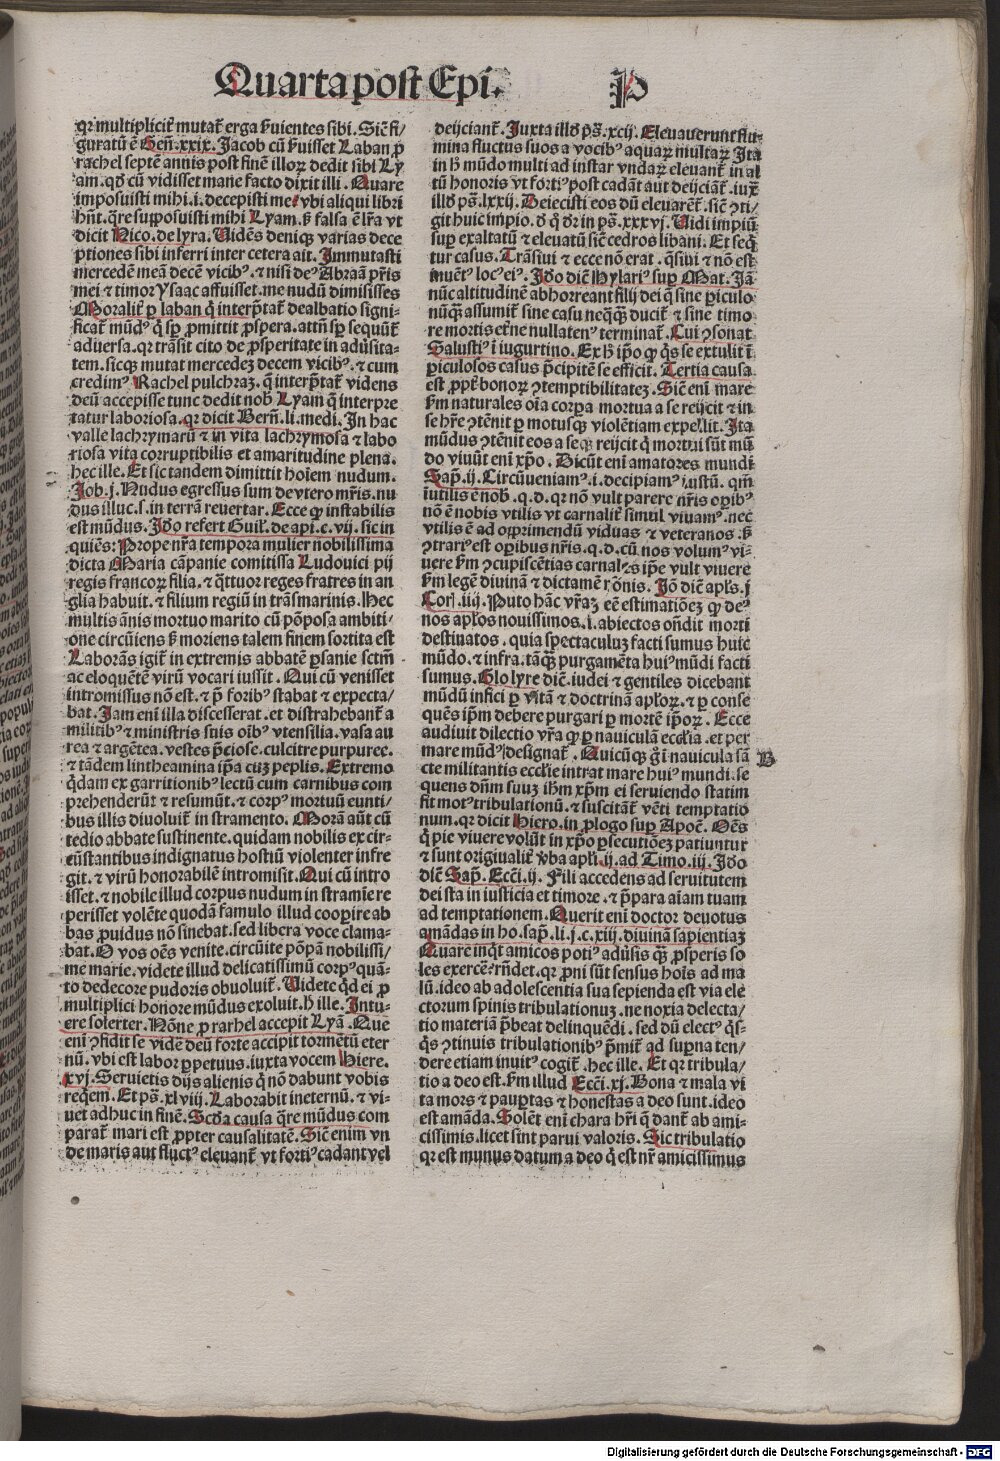 Quarta post Epi.
P
qꝛ multiplicit̃ mutat̃ erga ẜuientes sibi. Sic̃ fi/
guratũ ẽ Geñ.xxix. Jacob cũ ẜuisset Laban ꝓ
rachel septẽ annis post finẽ illoꝝ dedit sibi Ly
am. qđ cũ vidisset mane facto dixit illi. Quare
imposuisti mihi .i. decepisti me: vbi aliqui libri
hñt. q̃re supposuisti mihi Lyam. ẜ falsa ẽ lr̃a vt
dicit Nico. de lyra. Uidẽs deniqꝫ varias dece
ptiones sibi inferri inter cetera ait. Jmmutasti
mercedẽ meã decẽ vicibꝰ. ⁊ nisi deꝰ Abraã pr̃is
mei ⁊ timor Ysaac affuisset. me nudũ dimisisses
Moralit̃ ꝑ laban q̃ interp̃tat̃ dealbatio signi-
ficat̃ mũdꝰ q̃ sꝑ ꝓmittit ꝓspera. attñ sꝑ sequũt̃
aduersa. qꝛ trãsit cito de ꝓsperitate in aduẜita-
tem. sicqꝫ mutat mercedeꝫ decem vicibꝰ. ⁊ cum
credimꝰ Rachel pulchraꝫ. q̃ interp̃tat̃ videns
deũ accepisse tunc dedit nob̃ Lyam q̃ interpre
tatur laboriosa. qꝛ dicit Berñ. li. medi. Jn hac
valle lachrymarũ ⁊ in vita lachrymosa ⁊ labo
riosa vita corruptibilis et amaritudine plena.
hec ille. Et sic tandem dimittit hoĩem nudum.
Job .j. Nudus egressus sum de vtero mr̃is. nu
dus illuc .s. in terrã reuertar. Ecce ꝙ instabilis
est mũdus. Jđo refert Guil̃. de api. c. vij. sic in
quiẽs: Prope nr̃a tempora mulier nobilissima
dicta Maria cãpanie comitissa Ludouici pij
regis francoꝝ filia. ⁊ q̃ttuor reges fratres in an
glia habuit. ⁊ filium regiũ in trãsmarinis. Hec
multis ãnis mortuo marito cũ põposa ambiti-
one circũiens ẜ moriens talem finem sortita est
Laborãs igit̃ in extremis abbatẽ ꝑsanie sctm̃
ac eloquẽtẽ virũ vocari iussit. Qui cũ venisset
intromissus nõ est. ⁊ p̃ foribꝰ stabat ⁊ expecta/
bat. Jam eni illa discesserat. et distrahebant̃ a
militibꝰ ⁊ ministris suis oĩbꝰ vtensilia. vasa au
rea ⁊ argẽtea. vestes p̃ciose. culcitre purpuree.
⁊ tãdem lintheamina ip̃a cuꝫ peplis. Extremo
q̃dam ex garritionibꝰ lectũ cum carnibus com
prehenderũt ⁊ resumũt. ⁊ corpꝰ mortuũ eunti/
bus illis diuoluit̃ in stramento. Morã aũt cũ
tedio abbate sustinente. quidam nobilis ex cir-
cũstantibus indignatus hostiũ violenter infre
git. ⁊ virũ honorabilẽ intromisit. Qui cũ intro
isset. ⁊ nobile illud corpus nudum in stramĩe re
perisset volẽte quodã famulo illud cooꝑire ab
bas ꝓuidus nõ sinebat. sed libera voce clama-
bat. O vos oẽs venite. circũite põpã nobilissi/
me marie. videte illud delicatissimũ corpꝰ quã-
to dedecore pudoris obuoluit̃. Uidete qđ ei ꝓ
multiplici honore mũdus exoluit. h̃ ille. Jntu-
ere solerter. Nõne ꝓ rachel accepit Lyã. Que
eni ꝯfidit se videre deũ forte accipit tormẽtũ eter
nũ. vbi est labor ꝑpetuus. iuxta vocem Hiere.
xvj. Seruietis dijs alienis q̃ nõ dabunt vobis
req̃em. Et pš. xlviij. Laborabit ineternũ. ⁊ vi-
uet adhuc in finẽ. Scđa causa q̃re mũdus com
parat̃ mari est ꝓpter causalitatẽ. Sic̃ enim vn
de maris aut fluctꝰ eleuant̃ vt fortiꝰ cadant vel
deijciant̃. Juxta illđ pš. xcij. Eleuauerunt flu-
mina fluctus suos a vocibꝰ aquaꝝ multaꝝ Jta
in h̃ mũdo multi ad instar vndaꝝ eleuant̃ in al
tũ honoris vt fortiꝰ post cadãt aut deijciant̃. iux̃
illđ pš. lxxij. Deiecisti eos dũ eleuarẽt̃. sic̃ ꝯti-
git huic impio. đ q̃ đr in pš. xxxvj. Uidi impiũ
suꝑ exaltatũ ⁊ eleuatũ sic̃ cedros libani. Et seq̃
tur casus. Trãsiui ⁊ ecce nõ erat. q̃siui ⁊ nõ est
inuẽtꝰ locꝰ eiꝰ. Jđo dic̃ Hylariꝰ suꝑ Mat. Jã
nũc altitudinẽ abhorreant filij dei q̃ sine ꝑiculo
nũq̃ꝫ assumit̃ sine casu neq̃qꝫ ducit̃ ⁊ sine timo
re mortis et̃ne nullatenꝰ terminat̃. Cui ꝯsonat
Salustiꝰ ĩ iugurtino. Ex h̃ ip̃o ꝙ q̃s se extulit ĩ
ꝑiculosos casus p̃cipitẽ se efficit. Tertia causa
est ꝓpt̃ bonoꝝ ꝯtemptibilitateꝫ. Sic̃ eni mare
ẜm naturales oĩa corꝑa mortua a se reijcit ⁊ in
se hr̃e ꝯtẽnit ꝑ motusqꝫ violẽtiam expellit. Jta
mũdus ꝯtẽnit eos a seqꝫ reijcit q̃ mortui sũt mũ
do viuũt eni xp̃o. Dicũt eni amatores mundi
Sap̃. ij. Circũueniamꝰ .i. decipiamꝰ iustũ. qm̃
ĩutilis ẽ nob̃ .q.d. qꝛ nõ vult parere nr̃is oꝑibꝰ
nõ ẽ nobis vtilis vt carnalit̃ simul viuamꝰ. nec
vtilis ẽ ad oꝓprimendũ viduas ⁊ veteranos. ẜ
ꝯtrariꝰ est oꝑibus nr̃is .q.d. cũ nos volumꝰ vi-
uere ẜm ꝯcupiscẽtias carnales ip̃e vult viuere
ẜm legẽ diuinã ⁊ dictamẽ rõnis. Jõ dic̃ apl̃s. j
Cor̃. iiij. Puto hãc vr̃aꝫ eẽ estimatiõeꝫ ꝙ deꝰ
nos apl̃os nouissimos .i. abiectos on̄dit morti
destinatos. quia spectaculuꝫ facti sumus huic
mũdo. ⁊ infra. tãq̃ꝫ purgamẽta huiꝰ mũdi facti
sumus. Glo lyre dic̃. iudei ⁊ gentiles dicebant
mũdũ infici ꝑ vitã ⁊ doctrinã apl̃oꝝ. ⁊ ꝑ conse
quẽs ip̃m debere purgari ꝑ mortẽ ip̃oꝝ. Ecce
audiuit dilectio vr̃a ꝙ ꝑ nauiculã eccl̃ia. et per
mare mũdꝰ designat̃. Quicũqꝫ g̃ ĩ nauicula sã
cte militantis eccl̃ie intrat mare huiꝰ mundi. se
B
quens dñm suuꝫ ihm̃ xp̃m ei seruiendo statim
fit motꝰ tribulationũ. ⁊ suscitãt̃ vẽti temptatio
num. qꝛ dicit Hiero. in ꝓlogo suꝑ Apoc̃. Oẽs
q̃ pie viuere volũt in xp̃o ꝑsecutiõeꝫ patiuntur
⁊ sunt originalit̃ v̓ba apl̃i .ij. ad Timo. iij. Jđo
dic̃ Sap̃. Ecc̃i. ij. Fili accedens ad seruitutem
dei sta in iusticia et timore. ⁊ p̃para aĩam tuam
ad temptationem. Querit eni doctor deuotus
amãdas in ho. sap̃. li. j. c. xiij. diuinã sapientiaꝫ
Quare inq̃t amicos potiꝰ aduẜis q̃ꝫ ꝓsperis so
les exercẽ? rñdet. qꝛ ꝓni sũt sensus hoĩs ad ma
lũ. ideo ab adolescentia sua sepienda est via ele
ctorum spinis tribulationuꝫ. ne noxia delecta/
tio materiã p̃beat delinquẽdi. sed dũ electꝰ q̃s-
q̃s ꝯtinuis tribulationibꝰ p̃mit̃ ad suꝑna ten/
dere etiam inuitꝰ cogit̃. hec ille. Et qꝛ tribula/
tio a deo est. ẜm illud Ecc̃i. xj. Bona ⁊ mala vi
ta mors ⁊ pauꝑtas ⁊ honestas a deo sunt. ideo
est amãda. Solẽt eni chara hr̃i q̃ dant̃ ab ami-
cissimis. licet sint parui valoris. Sic tribulatio
qꝛ est munus datum a deo q̃ est nr̃ amicissimus
Digitalisierung gefördert durch die Deutsche Forschungsgemeinschaft - DFG